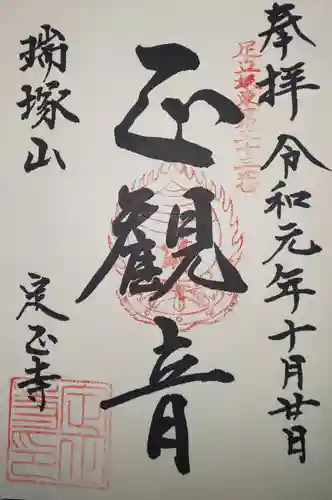 奉拝 令和元年十月廿日
足立坂東第二十三番
正観音
瑞塚山
定正寺